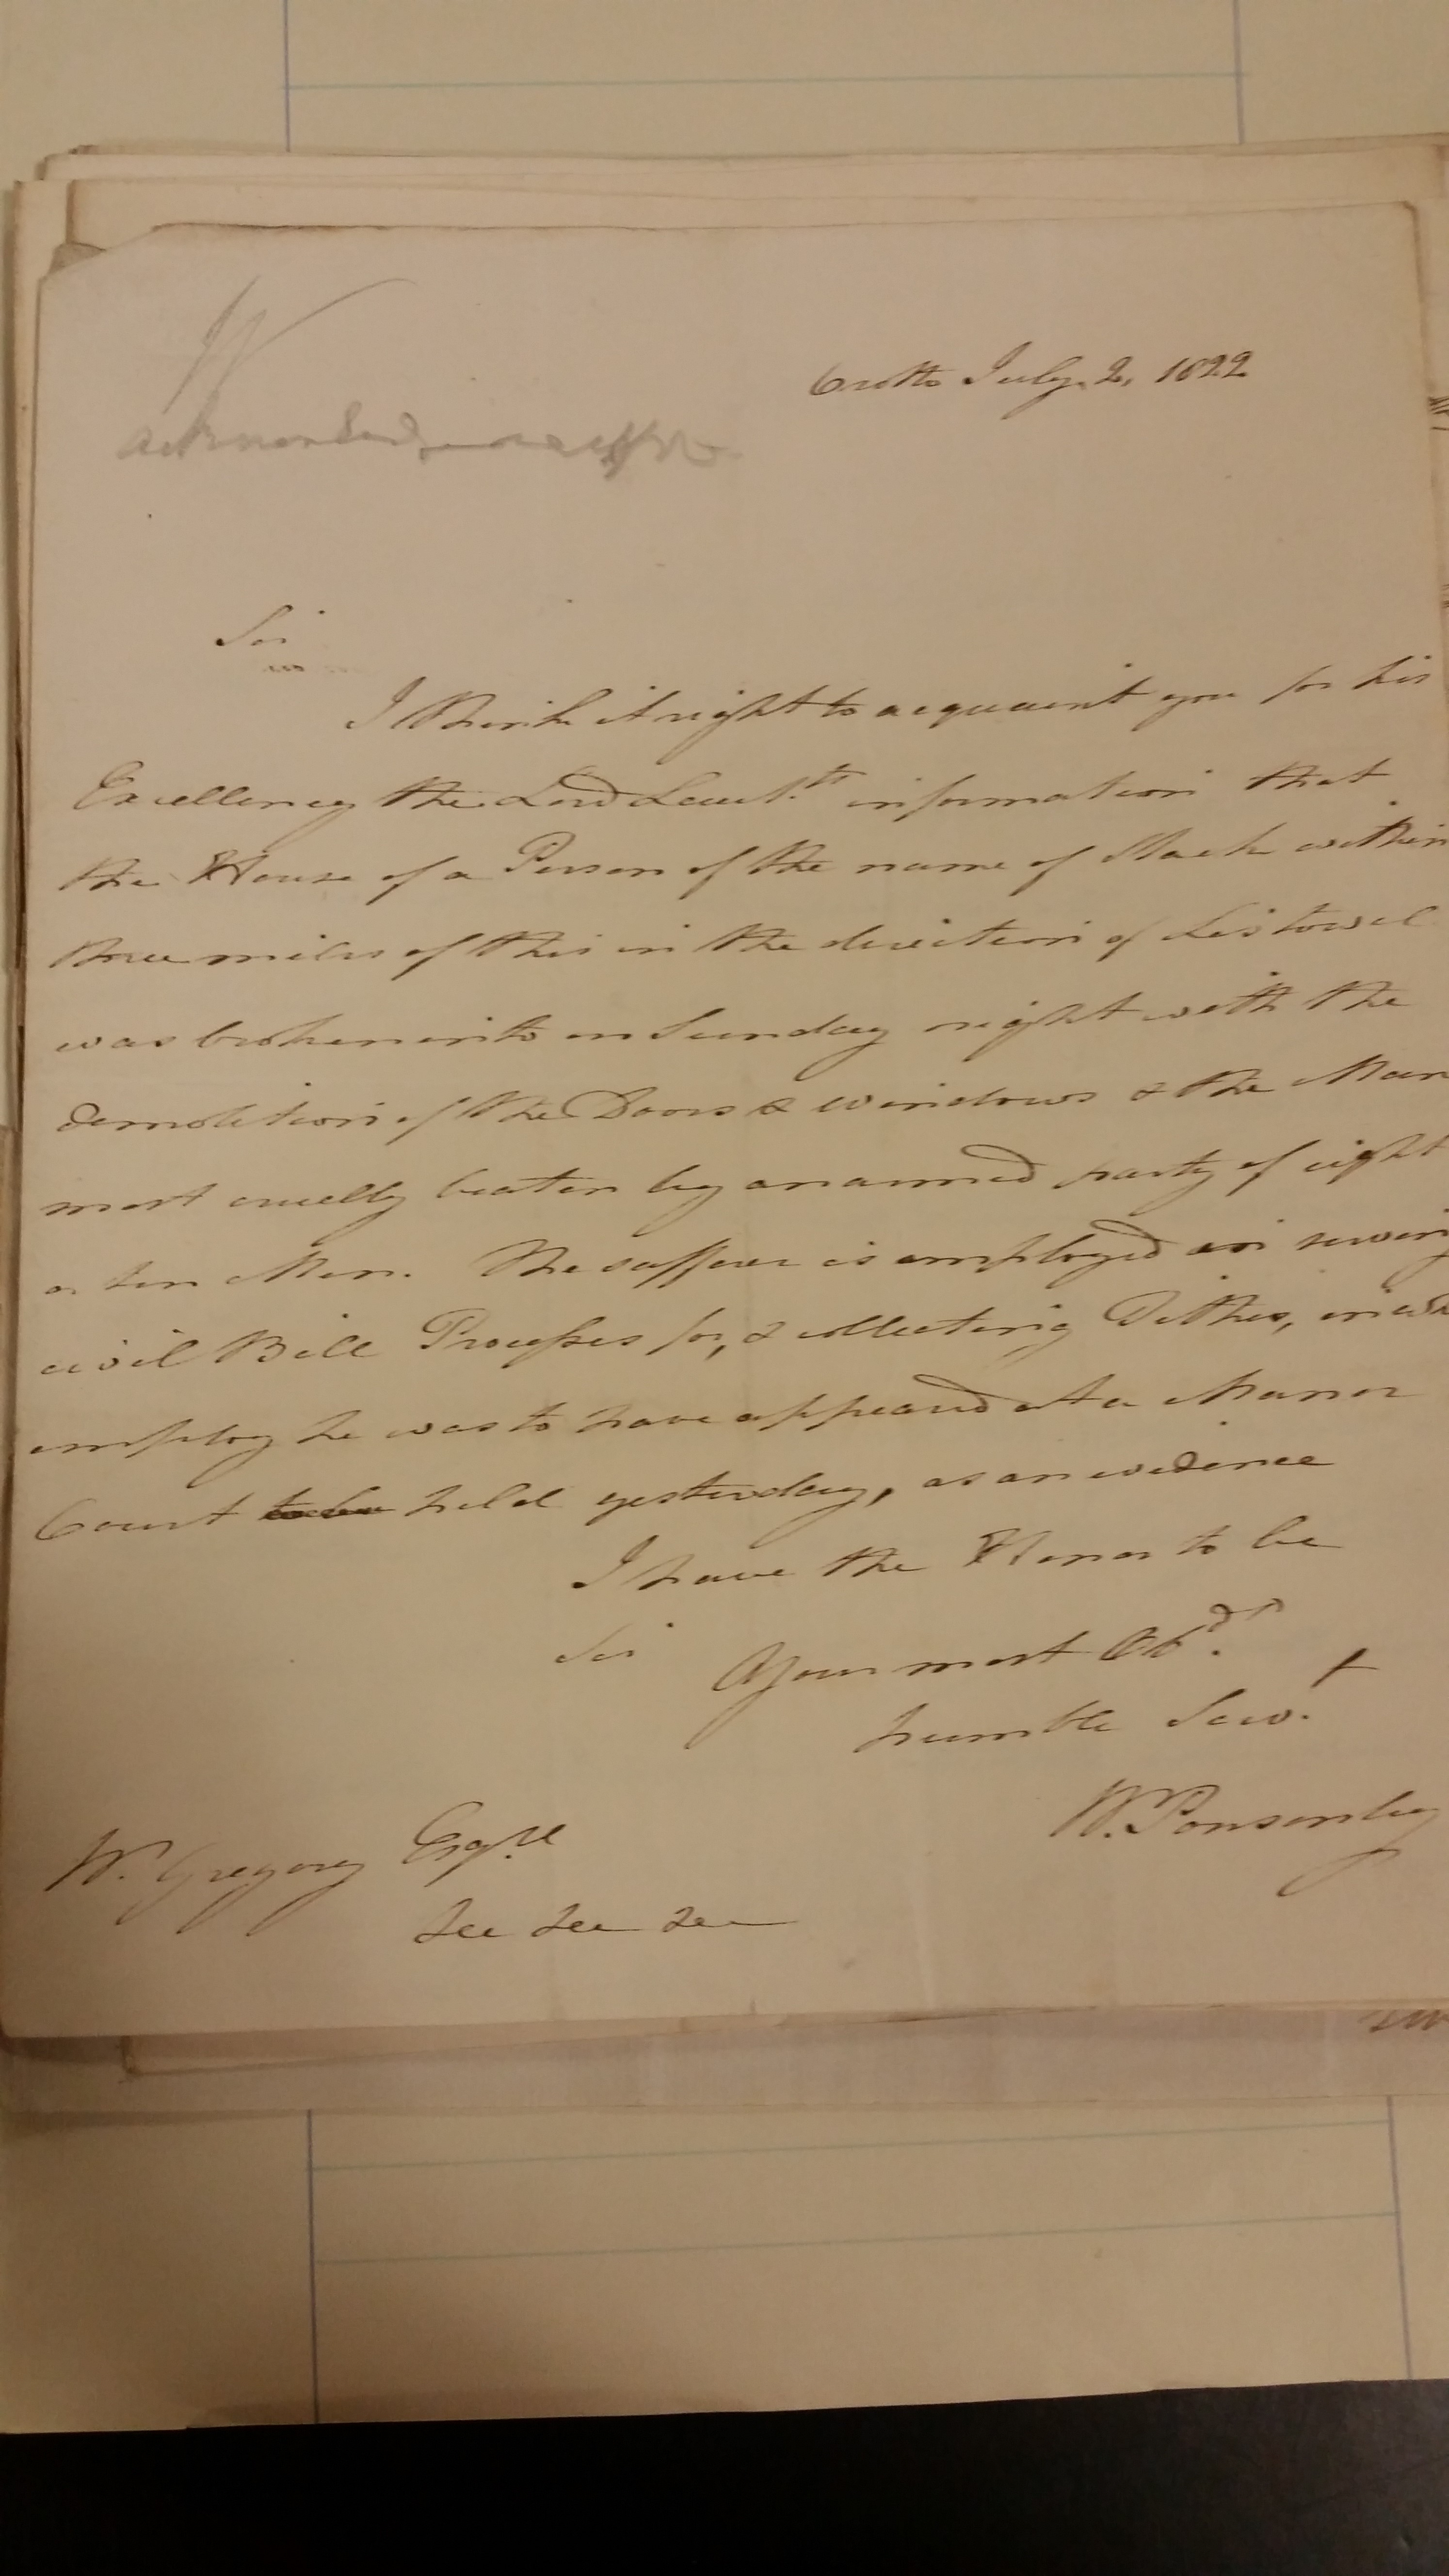 Crotto July 2, 1822
Sir
I think it right to acquaint you for his
Excellency the Lord Lieut.ts information that
the House of a Person of the name of Slack within
three miles of this in the direction of Listowel
was broken into on Sunday night with the
demolition of the Doors & windows & the Man
most cruelly beaten by an armed party of eight
or ten Men. The sufferer is employed in serving
civil Bill Processes for, & collecting Tithes, in wh
employ he was to have appeared at a Manor
Court to be held yesterday, as an evidence
I have the Honor to be
Sir Your most Obd.
humble Serv.t
W. Ponsonby
W. Gregory Esq.re